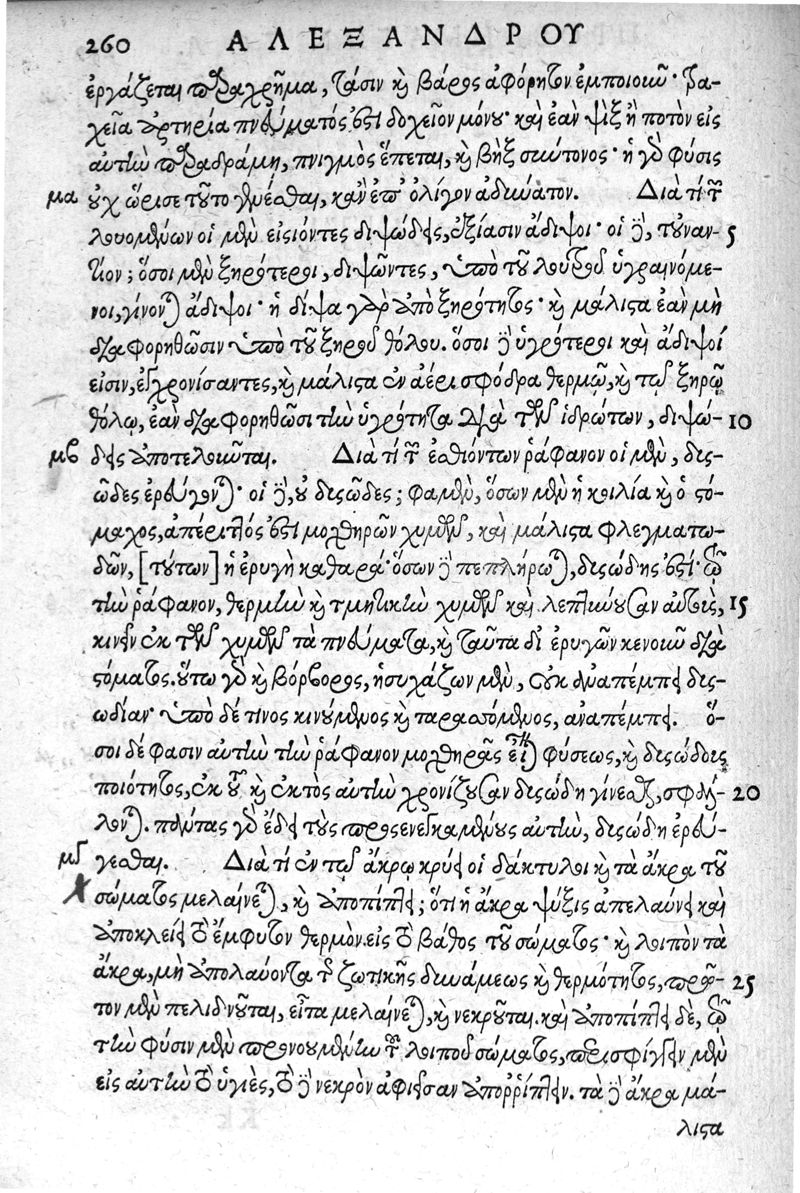 260 ΑΛΕΞΑΝΔΡΟΥ
ἐργάζεται παραχρῆμα, τάσιν καὶ βάρος ἀφόρητον ἐμποιοῦν· τρα-
χεῖα ἀρτηρία πνεύματός ἐστι δοχεῖον μόνου· καὶ ἐὰν ψὶξ ἢ ποτὸν εἰς
αὐτὴν παραδράμῃ, πνιγμὸς ἕπεται, καὶ βὴξ σύντονος· ἡ γὰρ φύσις
μα οὐχ ὥρισε τοῦτο γενέσθαι, κἂν ἐπ' ὀλίγον ἀδύνατον. Διὰ τί τῶν
λουομένων οἱ μὲν εἰσιόντες διψώδεις, ἐξίασιν ἄδιψοι· οἱ δὲ, τοὐναν- 5
τίον; ὅσοι μὲν ξηρότεροι, διψῶντες, ὑπὸ τοῦ λουτροῦ ὑγραινόμε-
νοι, γίνονται ἄδιψοι· ἡ δίψα γὰρ ἀπὸ ξηρότητος· καὶ μάλιστα ἐὰν μὴ
διαφορηθῶσιν ὑπὸ τοῦ ξηροῦ θόλου. ὅσοι δὲ ὑγρότεροι καὶ ἄδιψοί
εἰσιν, ἐγχρονίσαντες, καὶ μάλιστα ἐν ἀέρι σφόδρα θερμῷ, καὶ τῷ ξηρῷ
θόλῳ, ἐὰν διαφορηθῶσι τὴν ὑγρότητα διὰ τῶν ἱδρώτων, διψώ- 10
μβ δεις ἀποτελοῦνται. Διὰ τί τῶν ἐσθιόντων ῥάφανον οἱ μὲν, δυς-
ῶδες ἐρεύγονται· οἱ δὲ, οὐ δυςῶδες; φαμὲν, ὅσων μὲν ἡ κοιλία καὶ ὁ στό-
μαχος, ἀπέριττός ἐστι μοχθηρῶν χυμῶν, καὶ μάλιστα φλεγματω-
δῶν, [τούτων] ἡ ἐρυγὴ καθαρά· ὅσων δὲ πεπλήρωται, δυςώδης ἐστί· διὰ
τὴν ῥάφανον, θερμὴν καὶ τμητικὴν χυμῶν καὶ λεπτύνουσαν αὐτοὺς, 15
κινεῖν ἐκ τῶν χυμῶν τὰ πνεύματα, καὶ ταῦτα δι' ἐρυγῶν κενοῦν διὰ
στόματος. οὕτω γὰρ καὶ βόρβορος, ἡσυχάζων μὲν, οὐκ ἀναπέμπει δυς-
ωδίαν· ὑπὸ δέ τινος κινούμενος καὶ ταρασσόμενος, ἀναπέμπει. ὅ-
σοι δέ φασιν αὐτὴν τὴν ῥάφανον μοχθηρᾶς εἶναι φύσεως, καὶ δυςώδους
ποιότητος, ἐκ οὗ καὶ ἐκτὸς αὐτὴν χρονίζουσαν δυςώδη γίνεσθαι, σφάλ- 20
λονται. πάντας γὰρ ἔδει τοὺς προςενεγκαμένους αὐτὴν, δυςώδη ἐρεύ-
μγ γεσθαι. Διὰ τί ἐν τῷ ἄκρῳ κρύει οἱ δάκτυλοι καὶ τὰ ἄκρα τοῦ
σώματος μελαίνεται, καὶ ἀποπίπτει; ὅτι ἡ ἄκρα ψύξις ἀπελαύνει καὶ
ἀποκλείει τὸ ἔμφυτον θερμὸν εἰς τὸ βάθος τοῦ σώματος· καὶ λοιπὸν τὰ
ἄκρα, μὴ ἀπολαύοντα τῆς ζωτικῆς δυνάμεως καὶ θερμότητος, πρῶ- 25
τον μὲν πελιδνοῦται, εἶτα μελαίνεται, καὶ νεκροῦται. καὶ ἀποπίπτει δὲ, διὰ
τὴν φύσιν μὲν προνοουμένην τοῦ λοιποῦ σώματος, περισφίγγειν μὲν
εἰς αὐτὴν τὸ ὑγιὲς, τὸ δὲ νεκρὸν ἀφιεῖσαν ἀποῤῥίπτειν. τὰ δὲ ἄκρα μά-
λιστα